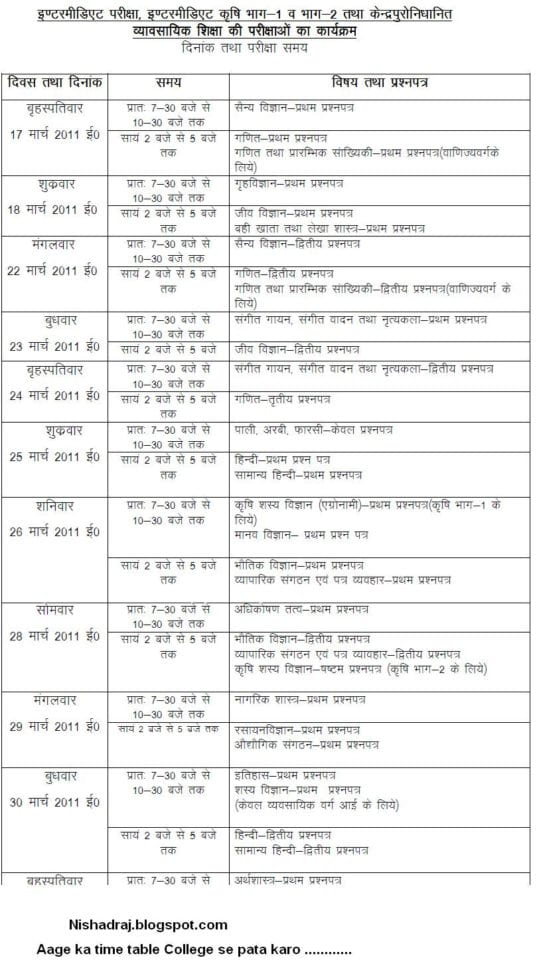 इण्टरमीडिएट परीक्षा, इण्टरमीडिएट कृषि भाग–1 व भाग–2 तथा केन्द्रपुरोनिधानित
व्यावसायिक शिक्षा की परीक्षाओं का कार्यक्रम
दिनांक तथा परीक्षा समय
दिवस तथा दिनांक समय विषय तथा प्रश्नपत्र
बृहस्पतिवार
17 मार्च 2011 ई0
प्रातः 7–30 बजे से
10–30 बजे तक
सैन्य विज्ञान–प्रथम प्रश्नपत्र
सायं 2 बजे से 5 बजे
तक
गणित–प्रथम प्रश्नपत्र
गणित तथा प्रारम्भिक सांख्यिकी–प्रथम प्रश्नपत्र(वाणिज्यवर्गके
लिये)
शुक्रवार
18 मार्च 2011 ई0
प्रातः 7–30 बजे से
10–30 बजे तक
गृहविज्ञान–प्रथम प्रश्नपत्र
सायं 2 बजे से 5 बजे
तक
जीव विज्ञान–प्रथम प्रश्नपत्र
बही खाता तथा लेखा शास्त्र–प्रथम प्रश्नपत्र
मंगलवार
22 मार्च 2011 ई0
प्रातः 7–30 बजे से
10–30 बजे तक
सैन्य विज्ञान–द्वितीय प्रश्नपत्र
सायं 2 बजे से 5 बजे
तक
गणित–द्वितीय प्रश्नपत्र
गणित तथा प्रारम्भिक सांख्यिकी–द्वितीय प्रश्नपत्र(वाणिज्यवर्ग के
लिये)
बुधवार
23 मार्च 2011 ई0
प्रातः 7–30 बजे से
10–30 बजे तक
संगीत गायन, संगीत वादन तथा नृत्यकला–प्रथम प्रश्नपत्र
सायं 2 बजे से 5 बजे
जीव विज्ञान–द्वितीय प्रश्नपत्र
बृहस्पतिवार
24 मार्च 2011 ई0
प्रातः 7–30 बजे से
10–30 बजे तक
संगीत गायन, संगीत वादन तथा नृत्यकला–द्वितीय प्रश्नपत्र
सायं 2 बजे से 5 बजे
तक
गणित–तृतीय प्रश्नपत्र
शुक्रवार
25 मार्च 2011 ई0
प्रातः 7–30 बजे से
10–30 बजे तक
पाली, अरबी, फारसी–केवल प्रश्नपत्र
सायं 2 बजे से 5 बजे
तक
हिन्दी–प्रथम प्रश्न पत्र
सामान्य हिन्दी–प्रथम प्रश्नपत्र
शनिवार
26 मार्च 2011 ई0
प्रातः 7–30 बजे से
10–30 बजे तक
कृषि शस्य विज्ञान (एग्रोनामी)–प्रथम प्रश्नपत्र(कृषि भाग–1 के
लिये)
मानव विज्ञान– प्रथम प्रश्न पत्र
सायं 2 बजे से 5 बजे
तक
भौतिक विज्ञान–प्रथम प्रश्नपत्र
व्यापारिक संगठन एवं पत्र व्यवहार–प्रथम प्रश्नपत्र
सोमवार
28 मार्च 2011 ई0
प्रातः 7–30 बजे से
10–30 बजे तक
अधिकोषण तत्व–प्रथम प्रश्नपत्र
सायं 2 बजे से 5 बजे
तक
भौतिक विज्ञान–द्वितीय प्रश्नपत्र
व्यापारिक संगठन एवं पत्र व्यावहार–द्वितीय प्रश्नपत्र
कृषि शस्य विज्ञान–षष्टम प्रश्नपत्र (कृषि भाग–2 के लिये)
मंगलवार
29 मार्च 2011 ई0
प्रातः 7–30 बजे से
10–30 बजे तक
नागरिक शास्त्र–प्रथम प्रश्नपत्र
सायं 2 बजे से 5 बजे तक
रसायनविज्ञान–प्रथम प्रश्नपत्र
औद्यौगिक संगठन–प्रथम प्रश्नपत्र
बुधवार
30 मार्च 2011 ई0
प्रातः 7–30 बजे से
10–30 बजे तक
इतिहास–प्रथम प्रश्नपत्र
शस्य विज्ञान–प्रथम प्रश्नपत्र
(केवल व्यवसायिक वर्ग आई के लिए)
सायं 2 बजे से 5 बजे
तक
हिन्दी–द्वितीय प्रश्नपत्र
सामान्य हिन्दी–द्वितीय प्रश्नपत्र
बृहस्पतिवार प्रातः 7–30 बजे से अर्थशास्त्र–प्रथम प्रश्नपत्र
Nishadraj.blogspot.com
Aage ka time table College se pata karo ............